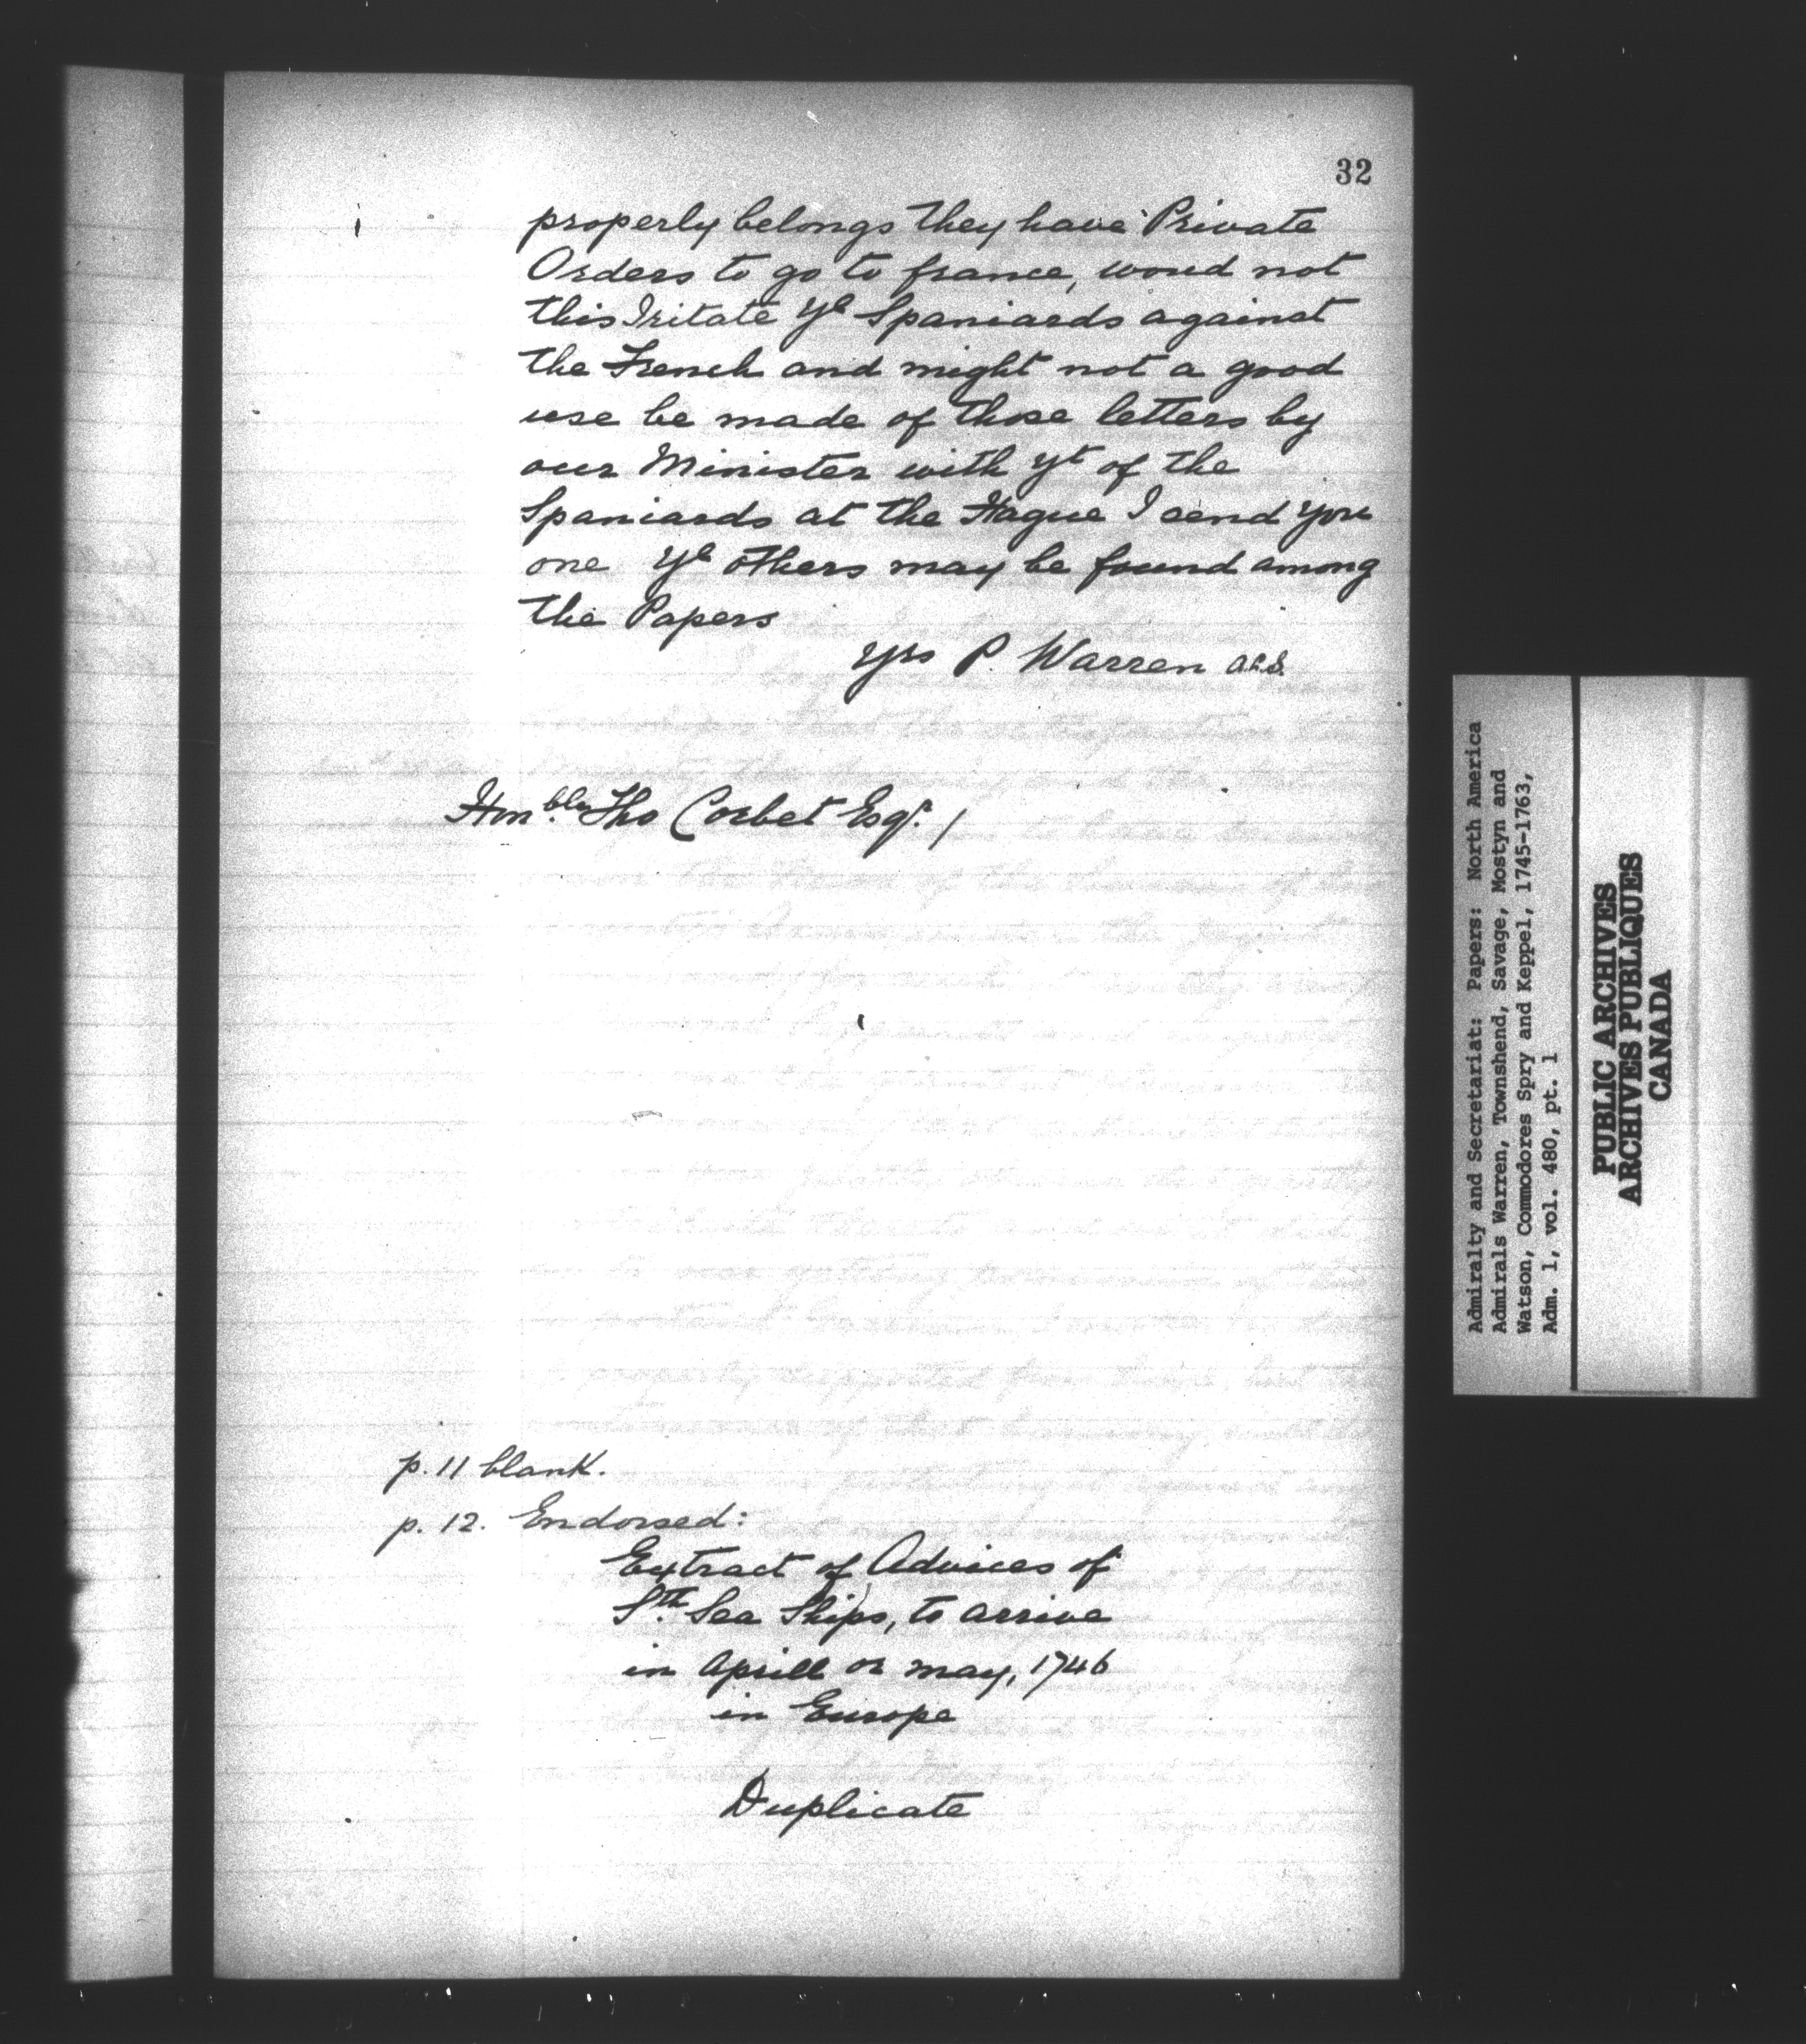 32
properly belongs they have Private
Orders to go to france, woud not
this Iritate yᵉ Spaniards against
the French and might not a good
use be made of those letters by
our Minister with yᵗ of the
Spaniards at the Hague I send you
one yᵉ others may be found among
the Papers
Yrs P. Warren a.l.s.
Honᵇˡᵉ Tho Corbet Esqʳ. /
p. 11 blank.
p. 12. Endorsed:
Extract of Advices of
Sᵗʰ Sea Ships, to arrive
in aprill or may, 1746
in Europe
Duplicate
Admiralty and Secretariat: Papers: North America
Admirals Warren, Townshend, Savage, Mostyn and
Watson, Commodores Spry and Keppel, 1745-1763,
Adm. 1, vol. 480, pt. 1
PUBLIC ARCHIVES
ARCHIVES PUBLIQUES
CANADA